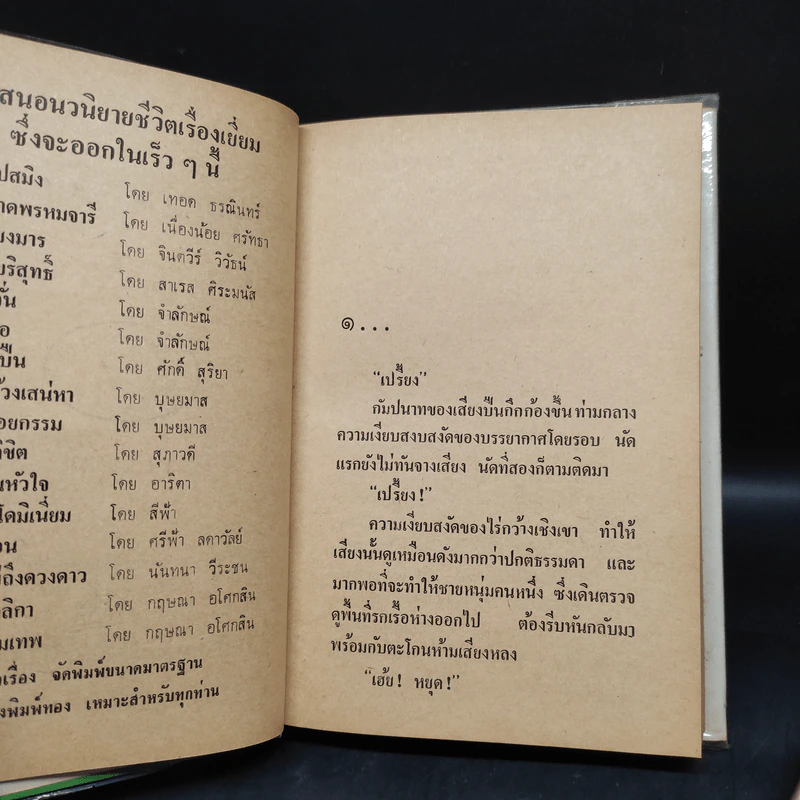 สนอนวนิยายชีวิตเรื่องเยี่ยม
ซึ่งจะออกในเร็ว ๆ นี้
ปสมิง โดย เทอด ธรณินทร์
าดพรหมจารี โดย เนื่องน้อย ศรัทธา
ยงมาร โดย จินตวีร์ วิวัธน์
บริสุทธิ์ โดย สาเรส ศิระมนัส
วั่น โดย จำลักษณ์
อ โดย จำลักษณ์
ปืน โดย ศักดิ์ สุริยา
้วงเสน่หา โดย บุษยมาส
อยกรรม โดย บุษยมาส
ิชิต โดย สุภาวดี
นหัวใจ โดย อาริตา
โดมิเนี่ยม โดย สีฟ้า
อน โดย ศรีฟ้า ลดาวัลย์
ถึงดวงดาว โดย นันทนา วีระชน
ลิกา โดย กฤษณา อโศกสิน
มเทพ โดย กฤษณา อโศกสิน
เรื่อง จัดพิมพ์ขนาดมาตรฐาน
งพิมพ์ทอง เหมาะสำหรับทุกท่าน
๑...
“เปรี้ยง”
กัมปนาทของเสียงปืนกึกก้องขึ้น ท่ามกลาง
ความเงียบสงบสงัดของบรรยากาศโดยรอบ นัด
แรกยังไม่ทันจางเสียง นัดที่สองก็ตามติดมา
“เปรี้ยง!”
ความเงียบสงัดของไร่กว้างเชิงเขา ทำให้
เสียงนั้นดูเหมือนดังมากกว่าปกติธรรมดา และ
มากพอที่จะทำให้ชายหนุ่มคนหนึ่ง ซึ่งเดินตรวจ
ดูพื้นที่รกเรื้อห่างออกไป ต้องรีบหันกลับมา
พร้อมกับตะโกนห้ามเสียงหลง
“เฮ้ย! หยุด!”